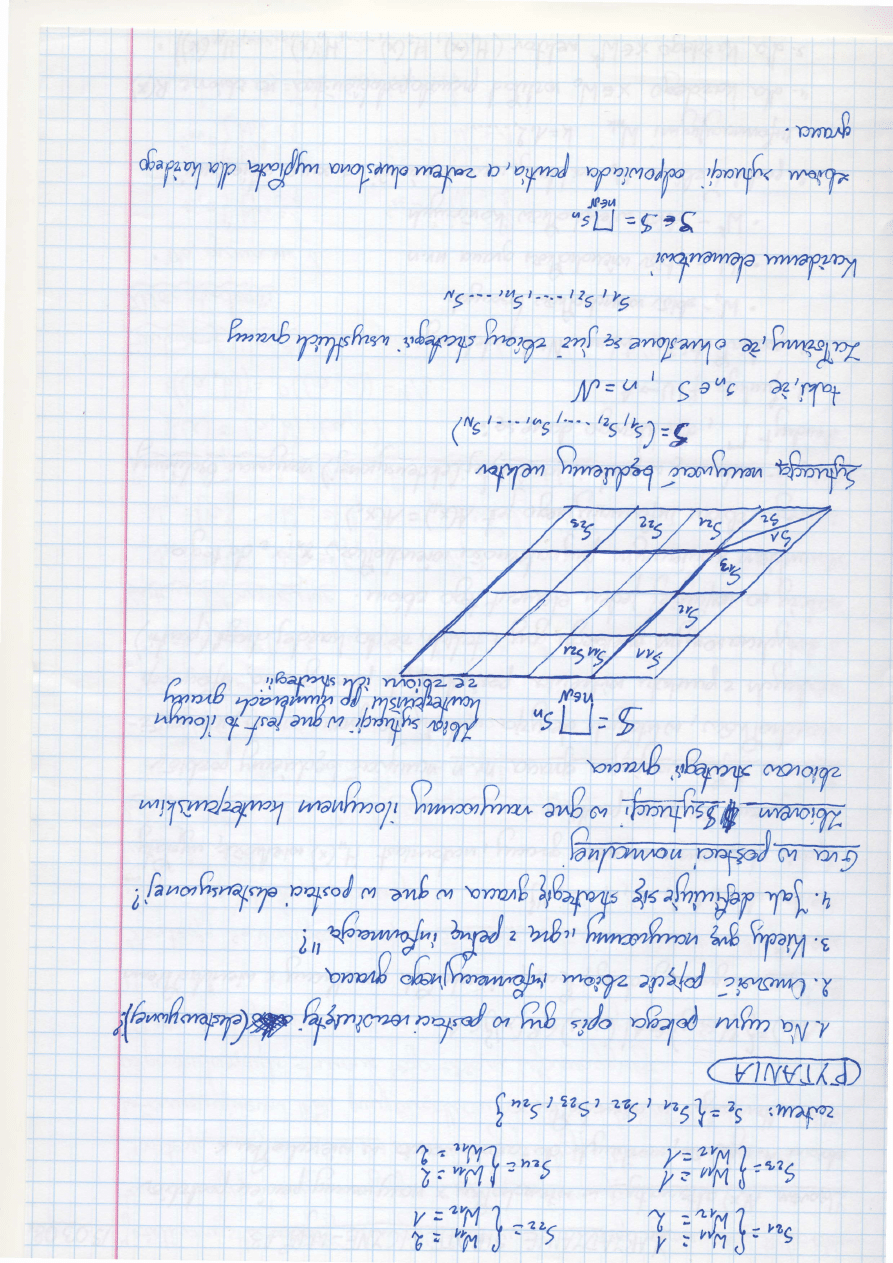 S21 = { W11 = 1 W12 = 2 S22 = { W11 = 2 W12 = 1
S23 = { W11 = 1 W12 = 1 S24 = { W11 = 2 W12 = 2
zatem: S2 = { S21, S22, S23, S24 }
PYTANIA
1. Na czym polega opis gry w postaci rozwiniętej (ekstensywnej)?
2. Omówić pojęcie zbioru informacyjnego gracza
3. Kiedy grę nazywamy „grą z pełną informacją"?
4. Jak definiuje się strategię gracza w grze w postaci ekstensywnej?
Gra w postaci normalnej
Zbiorem S sytuacji w grze nazywamy iloczynem kartezjańskim
zbiorów strategii gracza
S = ∏ Sn
n∈N
Zbiór sytuacji w grze jest to iloczyn
kartezjański po numerach graczy
ze zbioru ich strategii
S11 S11 S21
S12
S13
S1 S2 S21 S22 S23
Sytuacją nazywać będziemy wektor
S = (S1, S2, ...., Sn, ...., SN)
taki, że sn ∈ S, n = N
Załóżmy, że określone są już zbiory strategii wszystkich graczy
S1, S2, ...., Sn, .... SN
Każdemu elementowi
S ∈ S = ∏ Sn
n∈N
zbioru sytuacji odpowiada partia, a zatem określona wypłata dla każdego
gracza.